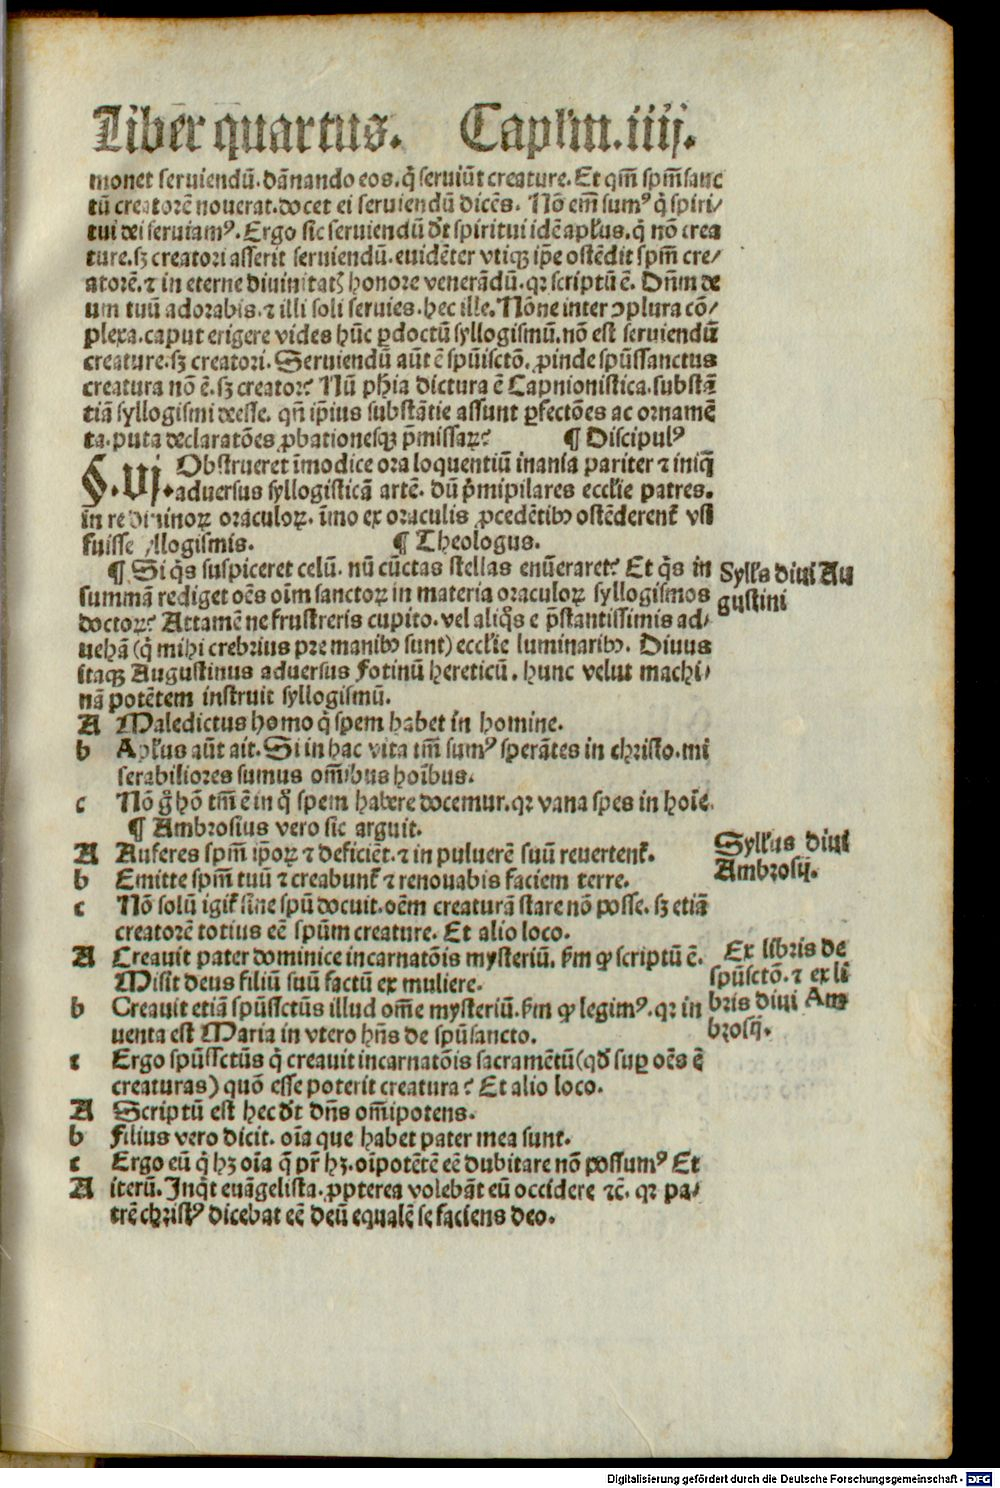 Liber quartus. Caplm. iiij.
monet seruiendū. dānando eos. q̄ seruiūt creature. Et qm̄ spm̄ sanc
tū creatorē nouerat. docet ei seruiendū dicēs. Nō em̄ sumꝰ q̄ spiri/
tui dei seruiamꝰ. Ergo sic seruiendū dt̄ spiritui idē apl'us. q̄ nō crea
ture. sꝫ creatori asserit seruiendū. euidēter vtiqꝫ ip̄e ostēdit spm̄ cre/
atorē. ⁊ in eterne diuinitatꝭ honore venerādū. qꝛ scriptū ē. Dn̄m de
um tuū adorabis. ⁊ illi soli seruies. hec ille. Nōne inter ꝯplura cō/
plexa. caput erigere vides hūc ꝑdoctū syllogismū. nō est seruiendū
creature. sꝫ creatori. Seruiendū aūt ē spūiscтō. ꝓinde spūssanctus
creatura nō ē. sꝫ creator? Nū ph̄ia dictura ē Capnionistica. substā
tiā syllogismi deesse. qn̄ ip̄ius substātie assunt ꝑfectōes ac ornamē
ta. puta declaratōes ꝓbationesqꝫ p̄missaꝝ? ¶ Discipulꝰ
§. vj. Obstrueret īmodice ora loquentiū inansa pariter ⁊ iniq̄
aduersus syllogisticā artē. dū p̄mipilares eccl'ie patres.
in re diuinoꝝ oraculoꝝ. īmo ex oraculis ꝓcedētibꝰ ostēderent᷑ vsi
fuisse syllogismis. ¶ Theologus.
¶ Si q̄s suspiceret celū. nū cūctas stellas enūeraret? Et q̄s in
summā rediget oēs oīm sanctoꝝ in materia oraculoꝝ syllogismos
doctoꝝ? Attamē ne frustreris cupito. vel aliq̄s e p̄stantissimis ad/
uehā (q̄ mihi crebrius pre manibꝰ sunt) eccl'ie luminaribꝰ. Diuus
itaqꝫ Augustinus aduersus Fotinū hereticū. hunc velut machi/
nā potētem instruit syllogismū.
Syll's diui Au
gustini
A Maledictus homo q̄ spem habet in homine.
b Apl'us aūt ait. Si in hac vita tm̄ sumꝰ sperātes in christo. mi
serabiliores sumus om̄ibus hoībus.
c Nō g̊ hō tm̄ ē in q̄ spem habere docemur. qꝛ vana spes in hoīe.
¶ Ambrosius vero sic arguit.
A Auferes spm̄ ip̄oꝝ ⁊ deficiēt. ⁊ in puluerē suū reuertent᷑.
b Emitte spm̄ tuū ⁊ creabunt᷑ ⁊ renouabis faciem terre.
c Nō solū igit᷑ sine spū docuit. oēm creaturā stare nō posse. sꝫ etiā
creatorē totius eē spūm creature. Et alio loco.
Syll'us diui
Ambrosij.
A Creauit pater dominice incarnatōis mysteriū. km̄ ꝙ scriptū ē.
Misit deus filiū suū factū ex muliere.
b Creauit etiā spūssctūs illud om̄e mysteriū. km̄ ꝙ legimꝰ. qꝛ in
uenta est Maria in vtero hn̄s de spūsancto.
c Ergo spūssctūs q̄ creauit incarnatōis sacramētū (qd̄ suꝑ oēs ē
creaturas) quō esse poterit creatura? Et alio loco.
Ex libris de
spūsctō. ⁊ ex li
bris diui Am
brosij.
A Scriptū est hec dt̄ dn̄s om̄ipotens.
b Filius vero dicit. oīa que habet pater mea sunt.
c Ergo eū q̄ hꝫ oīa q̄ pr̄ hꝫ. oīpotētē eē dubitare nō possumꝰ Et
A iterū. Inq̄t euāgelista. ꝓpterea volebāt eū occidere ⁊c̄. qꝛ pa/
trē christꝰ dicebat eē deū equalē se faciens deo.
Digitalisierung gefördert durch die Deutsche Forschungsgemeinschaft - DFG